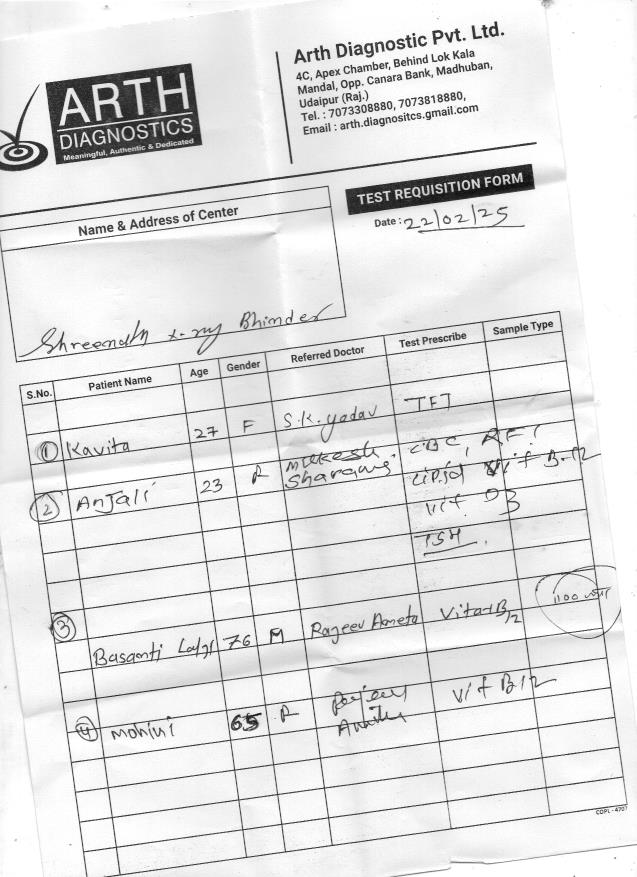 ARTH
DIAGNOSTICS
Meaningful, Authentic & Dedicated
Arth Diagnostic Pvt. Ltd.
4C, Apex Chamber, Behind Lok Kala
Mandal, Opp. Canara Bank, Madhuban,
Udaipur (Raj.)
Tel. : 7073308880, 7073818880,
Email : arth.diagnositcs.gmail.com
TEST REQUISITION FORM
Date : 22/02/25
Name & Address of Center
Shreenath x-ray Bhinder
S.No. Patient Name Age Gender Referred Doctor Test Prescribe Sample Type
1 Kavita 27 F S.K. yadav TFT
2 Anjali 23 Mukesh CBC, RFT
Lipid Vit B-12
Vit D3
TSH
3 Basanti 76 M Rajeev Ameta Vita-B12 1100
4 Mohini 65 Vit B12
COPL - 4707